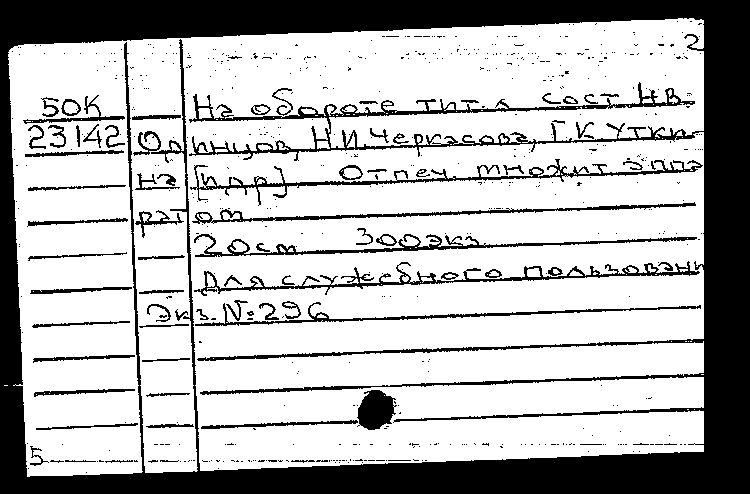 2
50К На обороте тит.л сост Н.В.
23142 Одинцов, Н.И.Черкасова, Г.К Утки-
на [и др] Отпеч. множит аппа
ратом
20см 300экз
Для служебного пользовани
Экз.№296
5